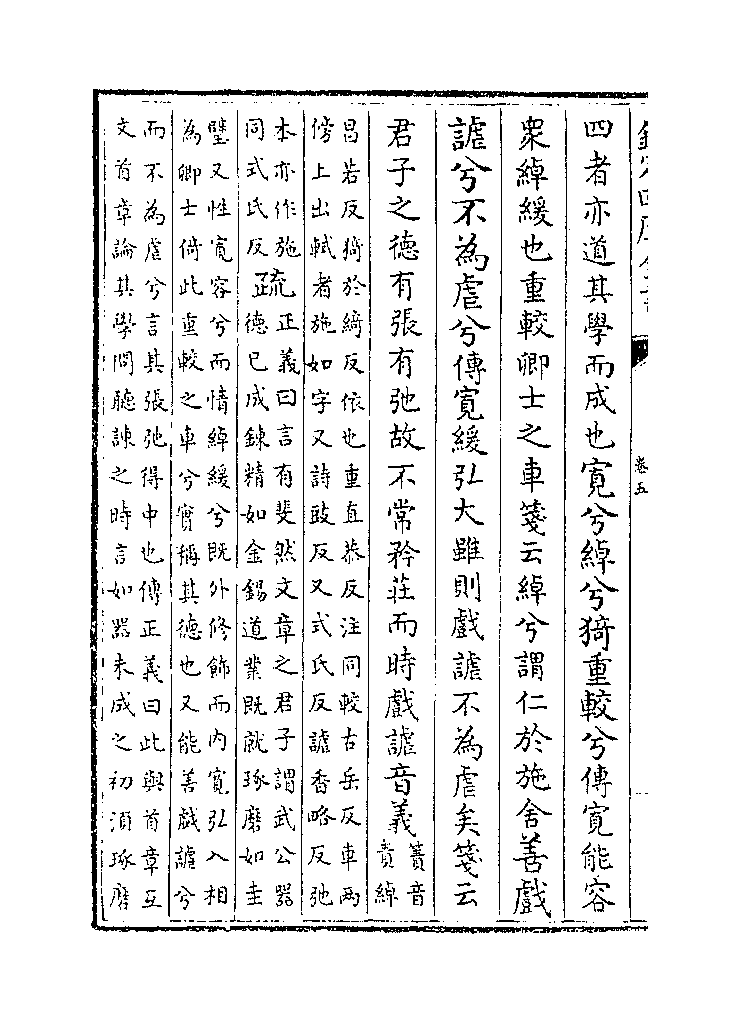 欽定四庫全書
卷五
四者亦道其學而成也寛兮綽兮猗重較兮傳寛能容
衆綽緩也重較卿士之車箋云綽兮謂仁於施舍善戲
謔兮不為虐兮傳寛緩弘大雖則戲謔不為虐矣箋云
君子之德有張有弛故不常矜莊而時戲謔音義簀音
責綽
昌若反猗於綺反依也重直恭反注同較古岳反車兩
傍上出軾者施如字又詩豉反又式氏反謔香略反弛
本亦作施
同式氏反
疏
正義曰言有斐然文章之君子謂武公器
德已成鍊精如金錫道業既就琢磨如圭
璧又性寛容兮而情綽緩兮既外修飾而内寛弘入相
為卿士倚此重較之車兮實稱其德也又能善戲謔兮
而不為虐兮言其張弛得中也傳正義曰此與首章互
文首章論其學問聽諫之時言如器未成之初須琢磨